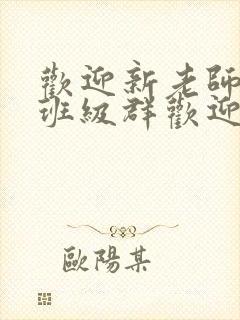 歡迎新老師
班級群歡迎
歐陽某